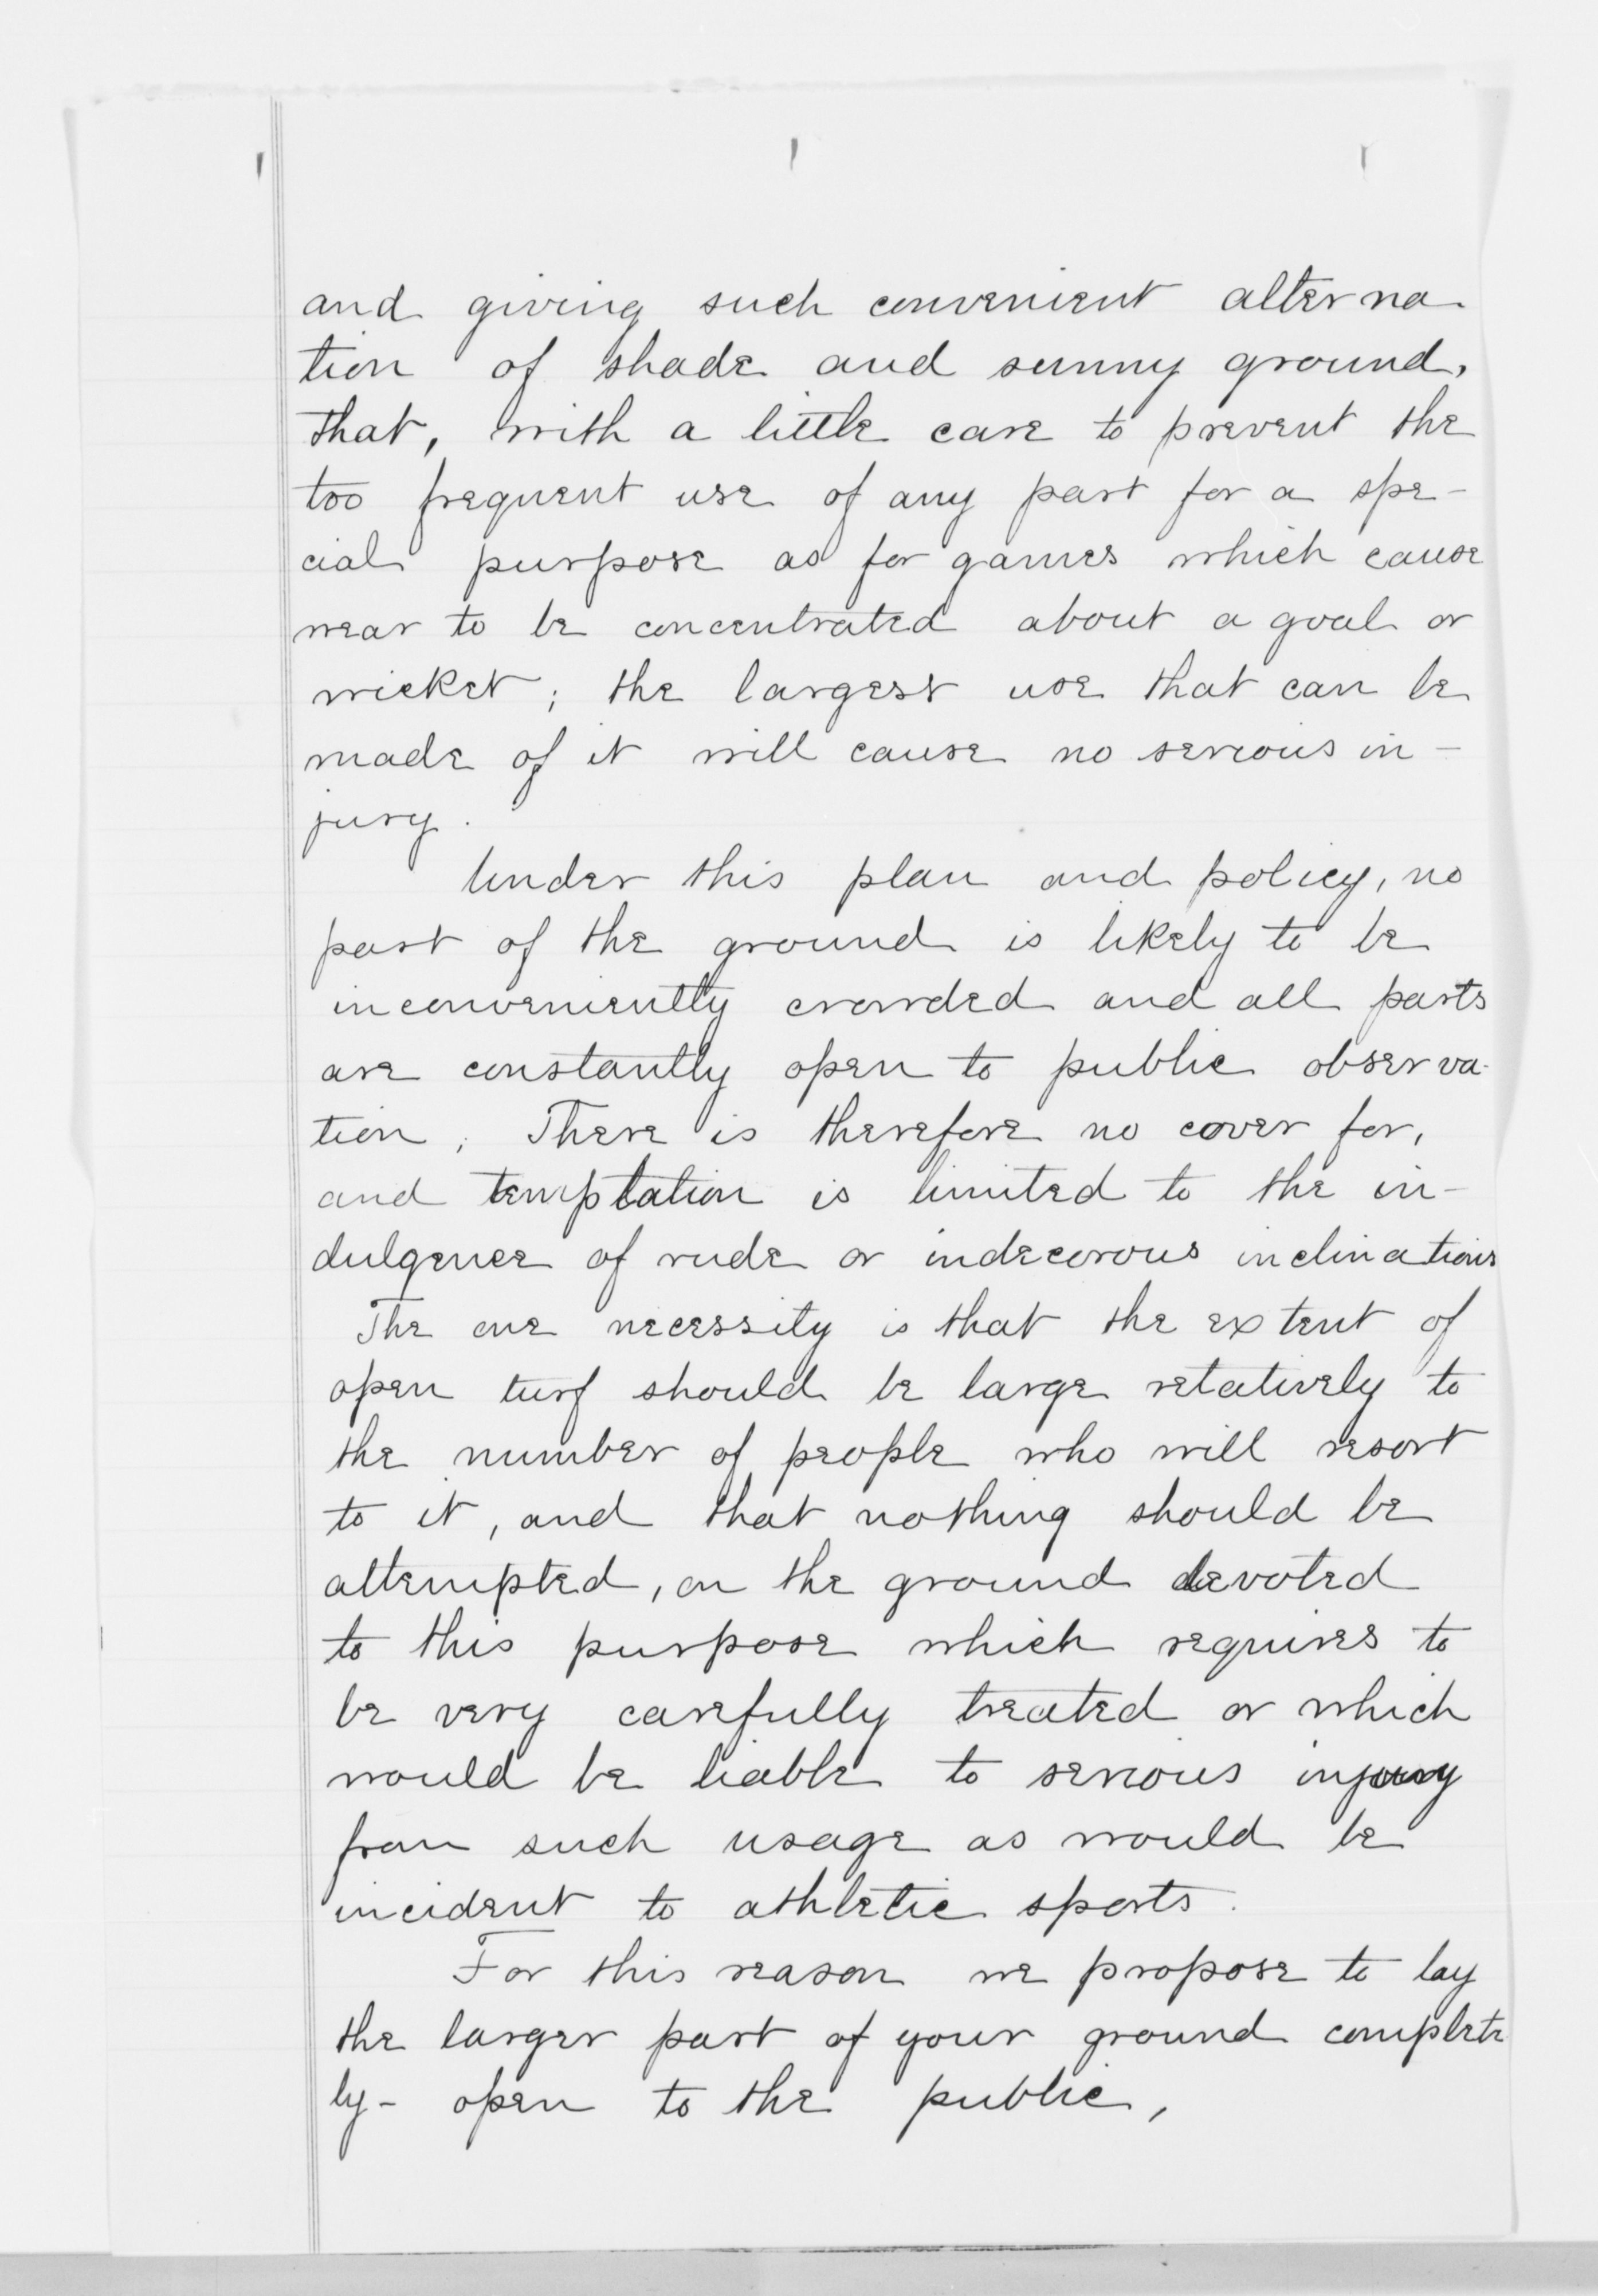 and giving such convenient alterna-
tion of shade and sunny ground,
that, with a little care to prevent the
too frequent use of any part for a spe-
cial purpose as for games which cause
wear to be concentrated about a goal or
wicket; the largest use that can be
made of it will cause no serious in-
jury.
Under this plan and policy, no
part of the ground is likely to be
inconveniently crowded and all parts
are constantly open to public observa-
tion, There is therefore no cover for,
and temptation is limited to the in-
dulgence of rude or indecorous inclinations
The one necessity is that the extent of
open turf should be large relatively to
the number of people who will resort
to it, and that nothing should be
attempted, on the ground devoted
to this purpose which requires to
be very carefully treated or which
would be liable to serious injury
from such usage as would be
incident to athletic sports.
For this reason we propose to lay
the larger part of your ground complete
ly- open to the public,